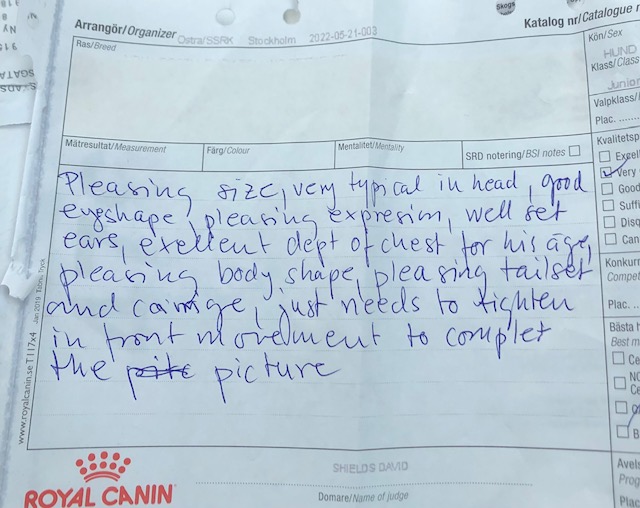 Skogs
Arrangör/Organizer
Östra/SSRK Stockholm 2022-05-21-003
Katalog nr/Catalogue n
Ras/Breed
Kön/Sex
HUND
Klass/Class
Junior
Valpklass/
Plac.
Mätresultat/Measurement
Färg/Colour
Mentalitet/Mentality
SRD notering/BSI notes
Kvalitetsp
Excell
Very
Good
Suffi
Disq
Can
Pleasing size, very typical in head, good
eyeshape, pleasing expresion, well set
ears, exellent dept of chest for his age,
pleasing body shape, pleasing tailset
and carrige, just needs to tighten
in front movement to complet
the picture
Konkurr
Compet
Plac.
Bästa
Best m
Ce
NO
Ce
B
www.royalcanin.se T117x4 Jan 2019 Tabergs Tryck
SHIELDS DAVID
Domare/Name of judge
ROYAL CANIN
Avels
Prog
Plac